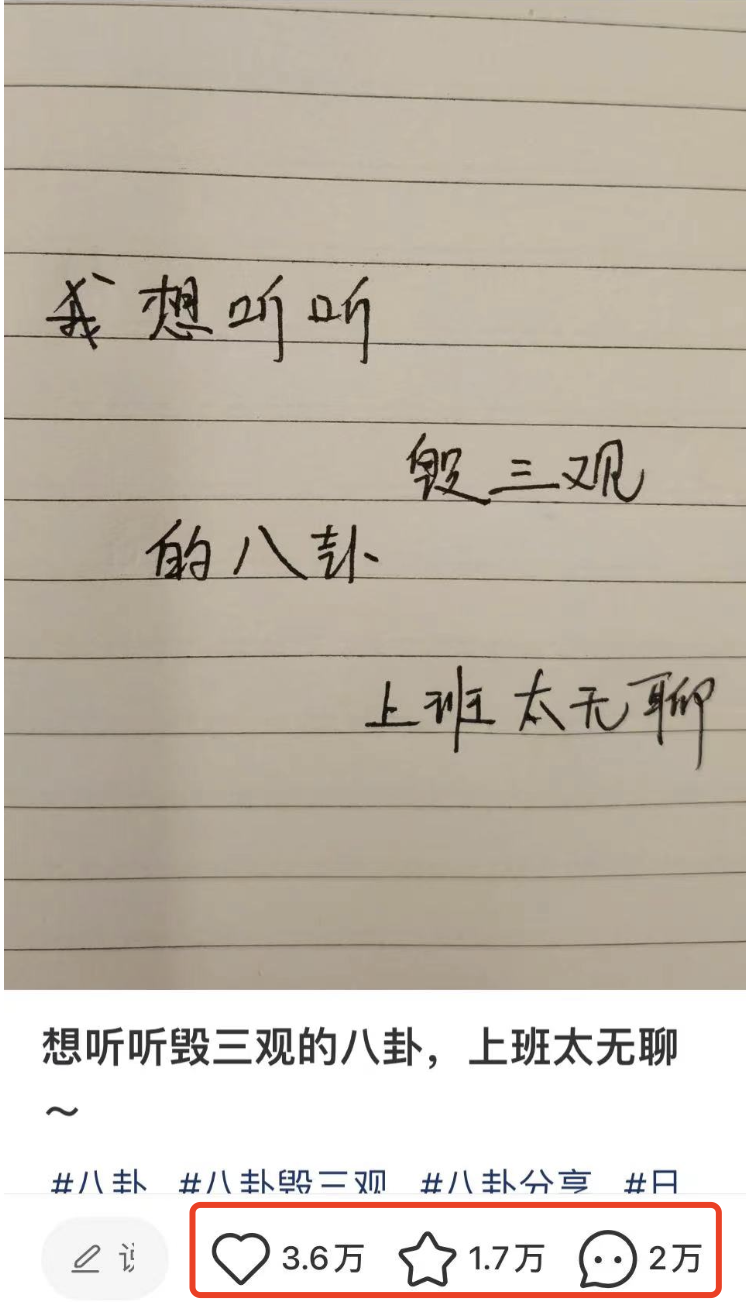 我想听听
毁三观
的八卦
上班太无聊
想听听毁三观的八卦，上班太无聊
～
#八卦 #八卦毁三观 #八卦分享 #日
3.6万 1.7万 2万